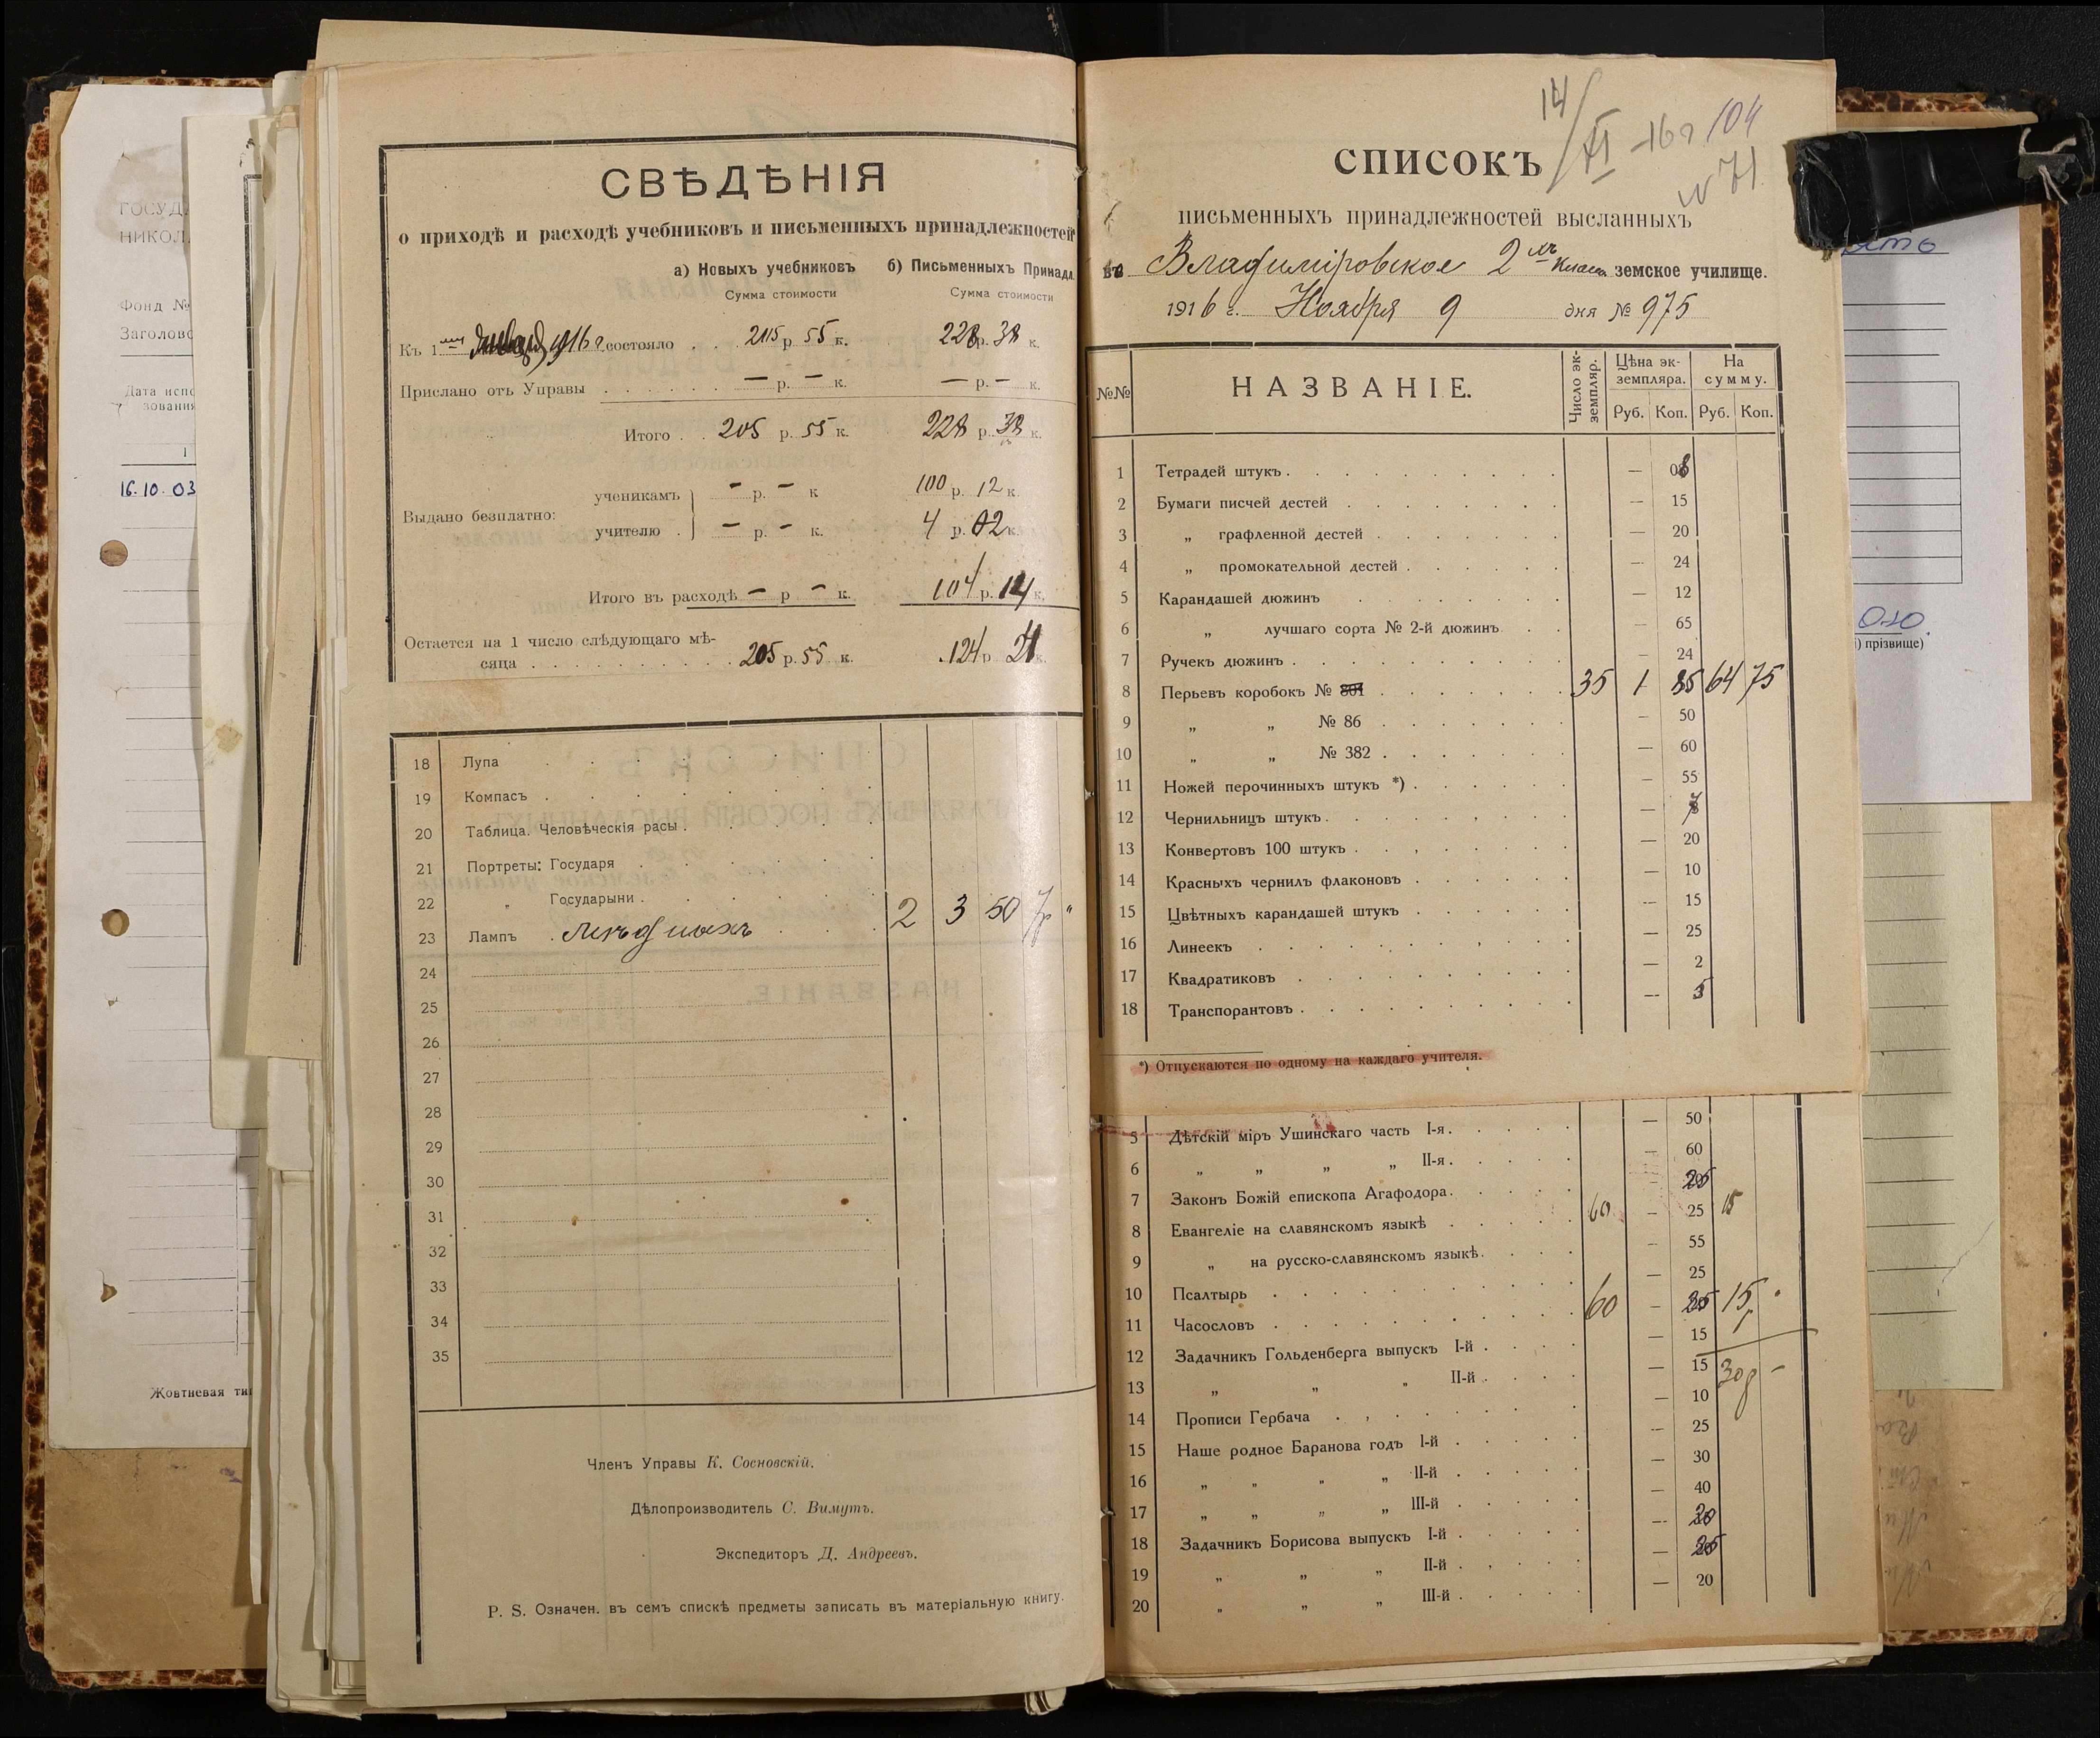 СВѢДѢНІЯ
о приходѣ и расходѣ учебниковъ и письменныхъ принадлежностей
а) Новыхъ учебниковъ б) Письменныхъ Принадл.
Сумма стоимости Сумма стоимости
Къ 1 1916 г. состояло . . . р. 55 к. 228 р. 38 к.
Прислано отъ Управы . . . . . . — р. — к. — р. — к.
Итого . . 205 р. 55 к. 228 р. 38 к.
ученикамъ — р. — к 100 р. 12 к.
Выдано безплатно:
учителю . — р. — к. 4 р. 02 к.
Итого въ расходѣ — р — к. 104 р. 14 к.
Остается на 1 число слѣдующаго мѣ-
сяца . . . . . . . . . . 205 р. 55 к. 124 р. к.
18 Лупа
19 Компасъ
20 Таблица. Человѣческія расы
21 Портреты: Государя
22 „ Государыни
23 Лампъ 2 3 50 7р "
24
25
26
27
28
29
30
31
32
33
34
35
Членъ Управы К. Сосновскій.
Дѣлопроизводитель С. Вимутъ.
Экспедиторъ Д. Андреевъ.
P. S. Означен. въ семъ спискѣ предметы записать въ матеріальную книгу.
14/XI -16 г 104
N 71
СПИСОКЪ
письменныхъ принадлежностей высланныхъ
въ Владиміровское 2 хъ класн. земское училище.
1916 г. Ноября 9 дня № 975
№№ НАЗВАНІЕ. Число эк-земпляр. Цѣна эк-земпляра. На сумму.
Руб. Коп. Руб. Коп.
1 Тетрадей штукъ —
2 Бумаги писчей дестей — 15
3 „ графленной дестей — 20
4 „ промокательной дестей — 24
5 Карандашей дюжинъ — 12
6 „ лучшаго сорта № 2-й дюжинъ — 65
7 Ручекъ дюжинъ — 24
8 Перьевъ коробокъ № 35 1 85 64 75
9 „ „ № 86 — 50
10 „ „ № 382 — 60
11 Ножей перочинныхъ штукъ *) — 55
12 Чернильницъ штукъ —
13 Конвертовъ 100 штукъ — 20
14 Красныхъ чернилъ флаконовъ — 10
15 Цвѣтныхъ карандашей штукъ — 15
16 Линеекъ — 25
17 Квадратиковъ — 2
18 Транспорантовъ —
*) Отпускаются по одному на каждаго учителя.
5 Дѣтскій міръ Ушинскаго часть I-я — 50
6 „ „ „ „ II-я — 60
7 Законъ Божій епископа Агафодора
8 Евангеліе на славянскомъ языкѣ 60 — 25 15
9 „ на русско-славянскомъ языкѣ — 55
10 Псалтырь — 25
11 Часословъ 60 — 15 р
12 Задачникъ Гольденберга выпускъ I-й — 15
13 „ „ „ II-й — 15 30 р —
14 Прописи Гербача — 10
15 Наше родное Баранова годъ I-й — 25
16 „ „ „ „ II-й — 30
17 „ „ „ „ III-й — 40
18 Задачникъ Борисова выпускъ I-й —
19 „ „ „ II-й —
20 „ „ „ III-й — 20
16.10.03
Фонд №
Жовтневая
прізвище)